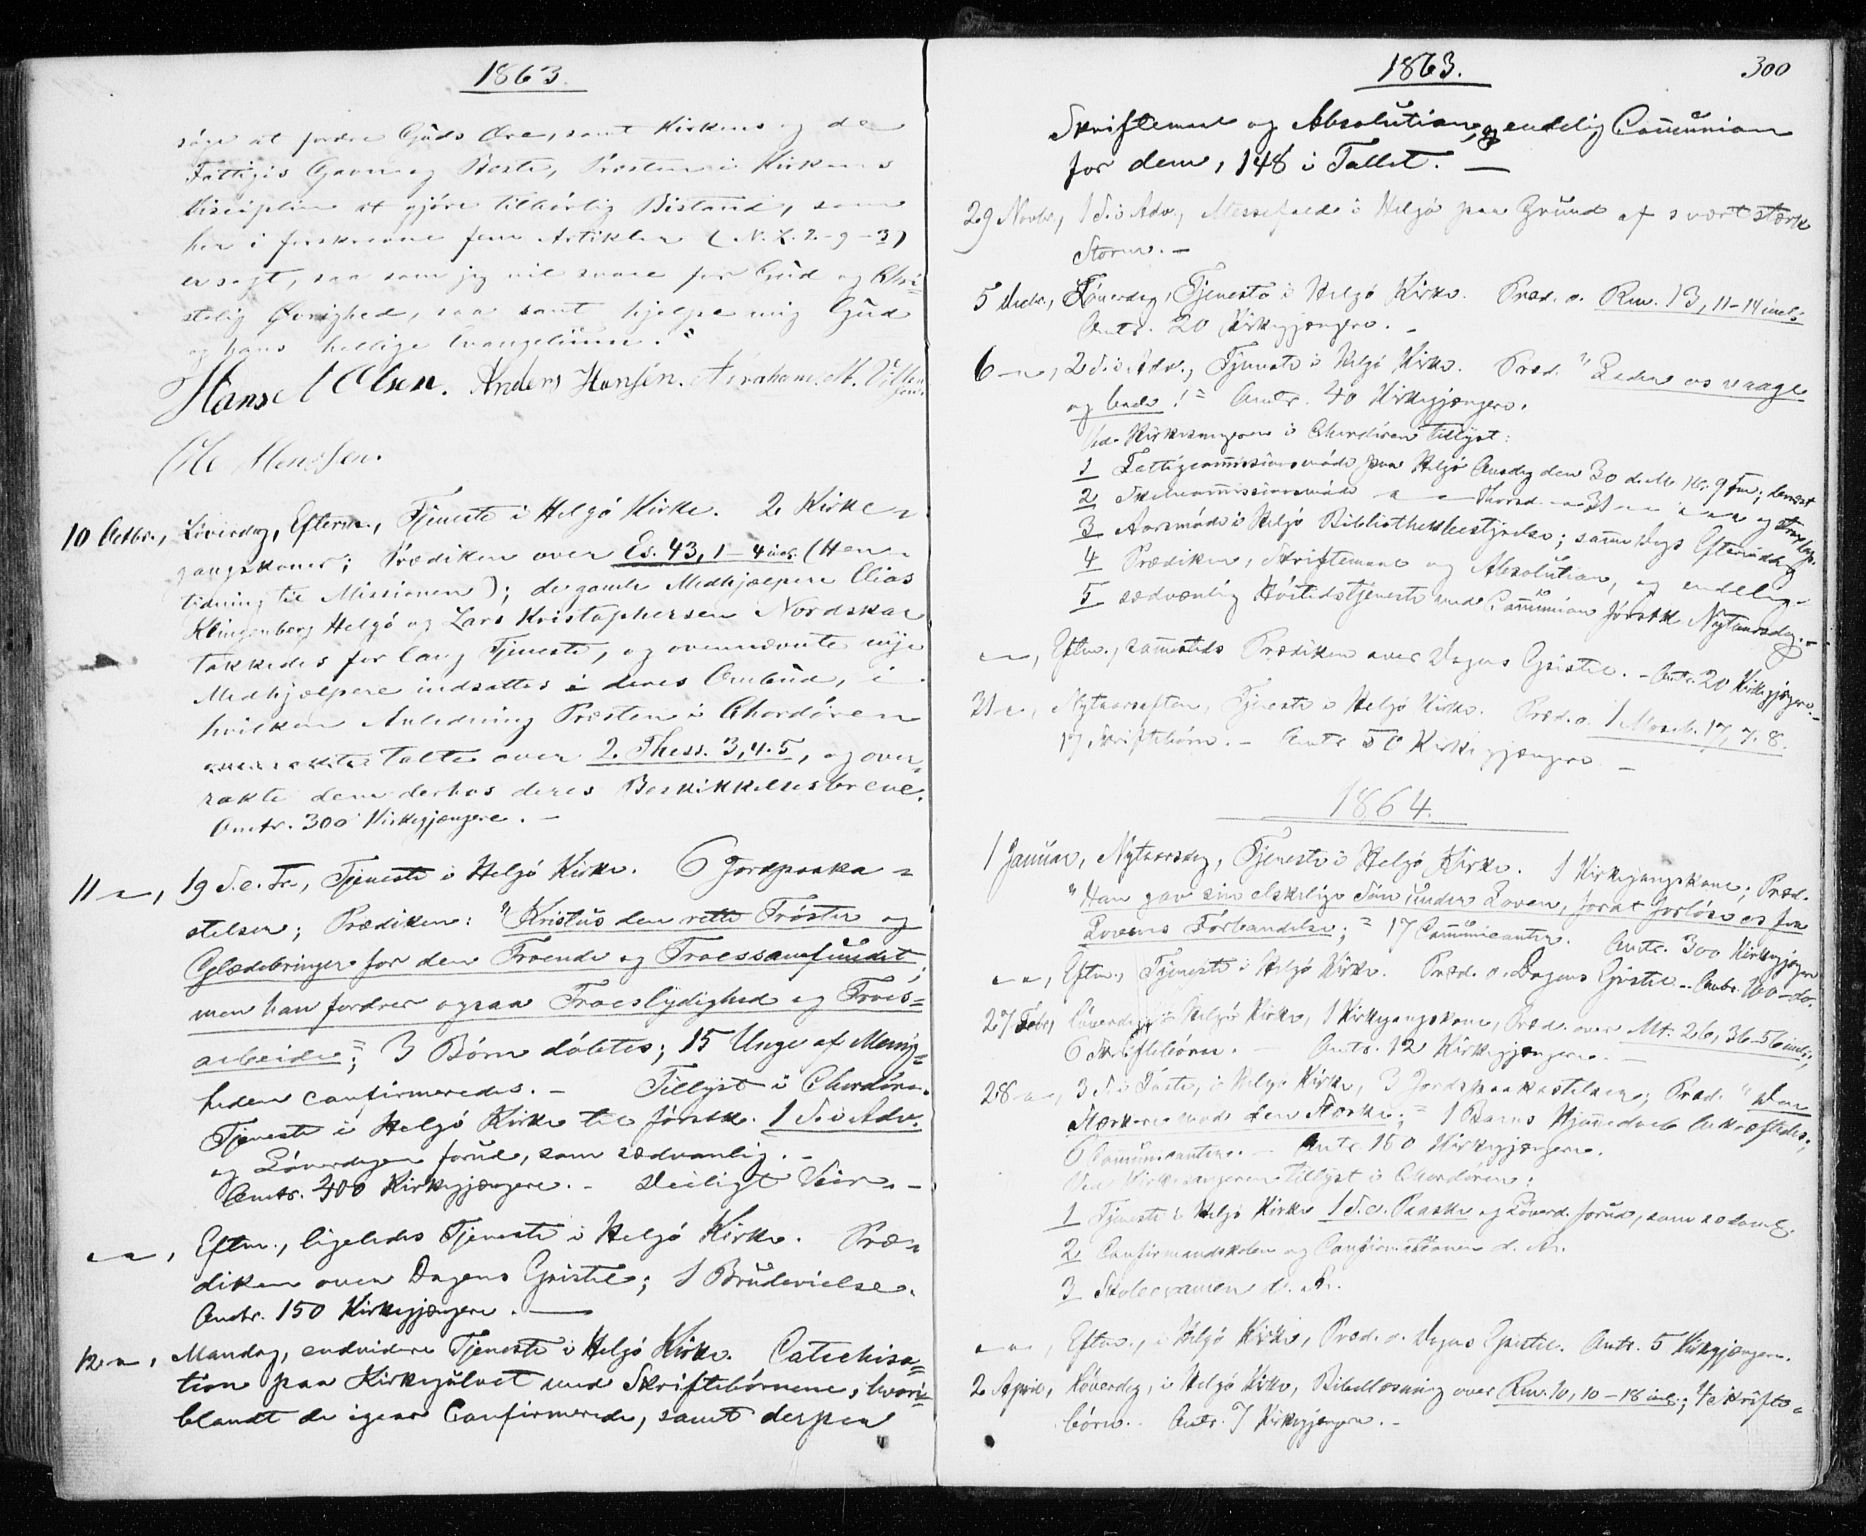 1863.
søge at fordre Guds Ære, samt Kirkens og de
Fattiges Gavn og Beste, Præsten i Kirkens
Disciplin at gjøre tilbørlig Bistand, som
her i forskrevne fem Artikler (N. L. 2-9-3)
er sagt, saa som jeg vil svare for Gud og Chri-
stelig Øvrighed, saa samt hjelpe mig Gud
og hans hellige Evangelium."
Hans Olsen. Anders Hansen. Abraham M.
Ole Monsen.
10 Octbr., Løverdag, Efterm., Tjeneste i Helgø Kirke. 2 Kirke-
gangskoner; Prædiken over Es. 43, 1-4 incl. (Hen-
tidning til Missionen); de gamle Medhjælpere Elias
Klingenberg Helgø og Lars Kristophersen Nordskar
takkedes for lang Tjeneste, og ovennævnte nye
Medhjælpere indsattes i deres Ombud, i
hvilken Anledning Præsten i Chordøren
talte over 2. Thess. 3, 4.5, og over-
rakte dem derhos deres Beskikkelsesbreve.
Omtr. 300 Kirkegjængere. -
11 -, 19 S. e. Tr., Tjeneste i Helgø Kirke. 6 Jordpaaka-
stelser; Prædiken: "Kristus den rette Trøster og
Glædebringer for den Troende og Troessamfundet,
men han fordrer ogsaa Troeslydighed og Troes-
arbeide"; 3 Børn døbtes; 15 Unge af Menig-
heden confirmeredes. - Tillyst i Chordøren
Tjeneste i Helgø Kirke til førstk. 1 S. i Adv.
og Løverdagen forud, som sædvanlig. -
Omtr. 400 Kirkegjængere. - Deiligt Veir. -
- -, Eftm., ligeledes Tjeneste i Helgø Kirke. Præ-
diken over Dagens Epistel; 1 Brudevielse.
Omtr. 150 Kirkegjængere. -
12 -, Mandag, endvidere Tjeneste i Helgø Kirke. Catechisa-
tion paa Kirkegulvet med Skriftebørnene, hvori-
blandt de igaar Confirmerede, samt derpaa
1863. 300
Skriftemaal og Absolution, og endelig Communion
for dem, 148 i Tallet. -
29 Novbr., 1 S. i Adv., Messefald i Helgø paa Grund af svært stærk
Storm. -
5 Decbr., Løverdag, Tjeneste i Helgø Kirke. Præd. o. Rom. 13, 11-14 incl.
Omtr. 20 Kirkegjængere. -
6 -, 2 S. i Adv., Tjeneste i Helgø Kirke. Præd. "Lader os vaage
og bede!" Omtr. 40 Kirkegjængere.
Ved Kirkesangeren i Chordøren tillyst:
1 Fattigcommissionsmøde paa Helgø Onsdag den 30 d. M. Kl. 9 Fm; dernæst
2 Skolecommissionsmøde - - Thorsd. - 31 - - - - og strax
3 Aarsmøde i Helgø Bibliothekbestyrelse; samme Dags Eftermiddag
4 Prædiken, Skriftemaal og Absolution, og endelig
5 sædvanlig Høitidstjeneste med Communion førstk. Nytaarsdag. -
- -, Eftm., sammesteds Prædiken over Dagens Epistel. - Omtr. 20 Kirkegjængere. -
31 -, Nytaarsaften, Tjeneste i Helgø Kirke. Præd. o. 1 Moseb. 17, 7.8.
17 Skriftebørn. - Omtr. 50 Kirkegjængere -
1864.
1 Januar, Nytaarsdag, Tjeneste i Helgø Kirke. 1 Kirkegangskone; Præd.
"Han gav sin elskelige Søn under Loven, forat forløse os fra
Lovens Forbandelse;" 17 Communicanter. Omtr. 300 Kirkegjængere
- -, Eftm., Tjeneste i Helgø Kirke. Præd. o. Dagens Epistel - Omtr. 100 - do.
27 Febr., Løverdag, i Helgø Kirke, 1 Kirkegangskone, Præd. over Mt. 26, 36-56 incl.;
6 Skriftebørn. - Omtr. 12 Kirkegjængere. -
28 -, 3 S. i Faste, i Helgø Kirke, 3 Jordspaakastelser; Præd. "Den
Stærkere mod den Stærke;" 1 Barns Hjemmedaab bekræftedes;
6 Communicanter. - Omtr. 150 Kirkegjængere.
Ved Kirkesangeren tillyst i Chordøren:
1 Tjeneste i Helgø Kirke 1 S. e. Paaske og Løverd. forud, som sædvanl.
2 Confirmandskolen og Confirmationen d. A.
3 Skoleexamen d. A.
- -, Eftm., i Helgø Kirke, Præd. o. Dagens Epistel. Omtr. 5 Kirkegjængere.
2 April, Løverdag, i Helgø Kirke, Bibellæsning over Rom. 10, 10-18 incl.; 4 Skrifte-
børn. Omtr. 7 Kirkegjængere. -